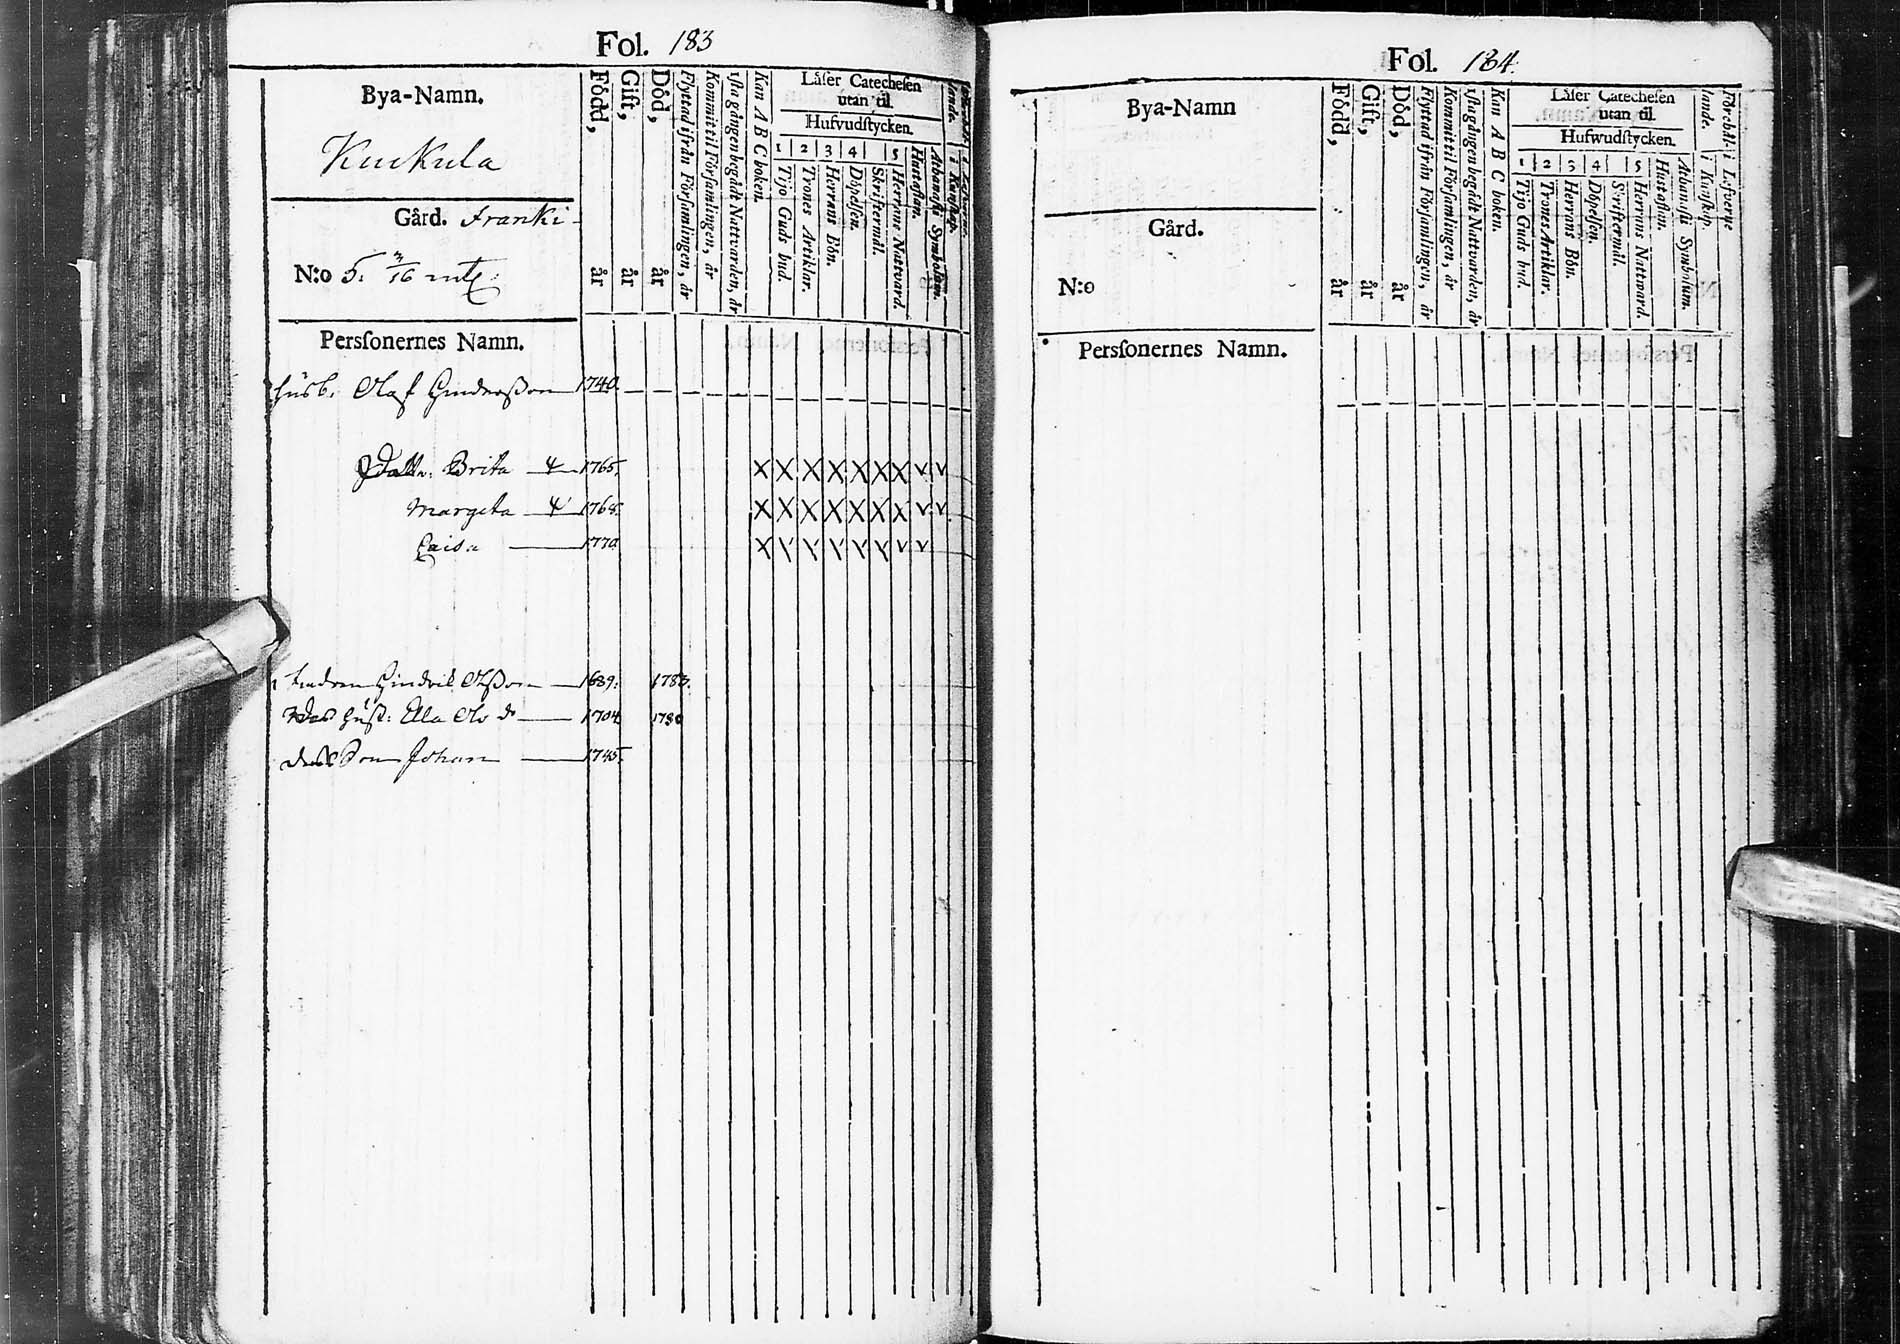 Fol. 183
Bya-Namn.
Kuckula
Gård. Franki
N:o 5. 3/16 mtl
Perſonernes Namn.
Född, år
Gift, år
Död, år
Flyttad ifrån Förſamlingen, år
Kommit til Förſamlingen, år
1ſta gången begådt Nattvarden, år
Kan A B C boken.
Läſer Catecheſen
utan til.
Hufvudſtycken.
1 2 3 4 5
Tijo Guds bud.
Trones Artiklar.
Herrans Bön.
Döpelſen.
Skriftermål.
Herrans Nattvard.
Huſtaflan.
Athanaſii Symbolum.
husb. Olof Hindersson 1740.
Brita 1765.
Margeta 1768.
Caisa 1770
Hindrik Olsson 1689. 1783.
hust: Ella Olo d 1704 1780
Son Johan 1745.
Fol. 184.
Bya-Namn
Gård.
N:o
Perſonernes Namn.
Född, år
Gift, år
Död, år
Flyttad ifrån Förſamlingen, år
Kommit til Förſamlingen, år
1ſta gången begådt Nattvarden, år
Kan A B C boken.
Läſer Catecheſen
utan til.
Hufwudſtycken.
1 2 3 4 5
Tijo Guds bud.
Trones Artiklar.
Herrans Bön.
Döpelſen.
Skriftermål.
Herrans Nattward.
Huſtaflan.
Athanaſii Symbolum.
Förehål-
lande.
i Kunſkap.
i Lefverne